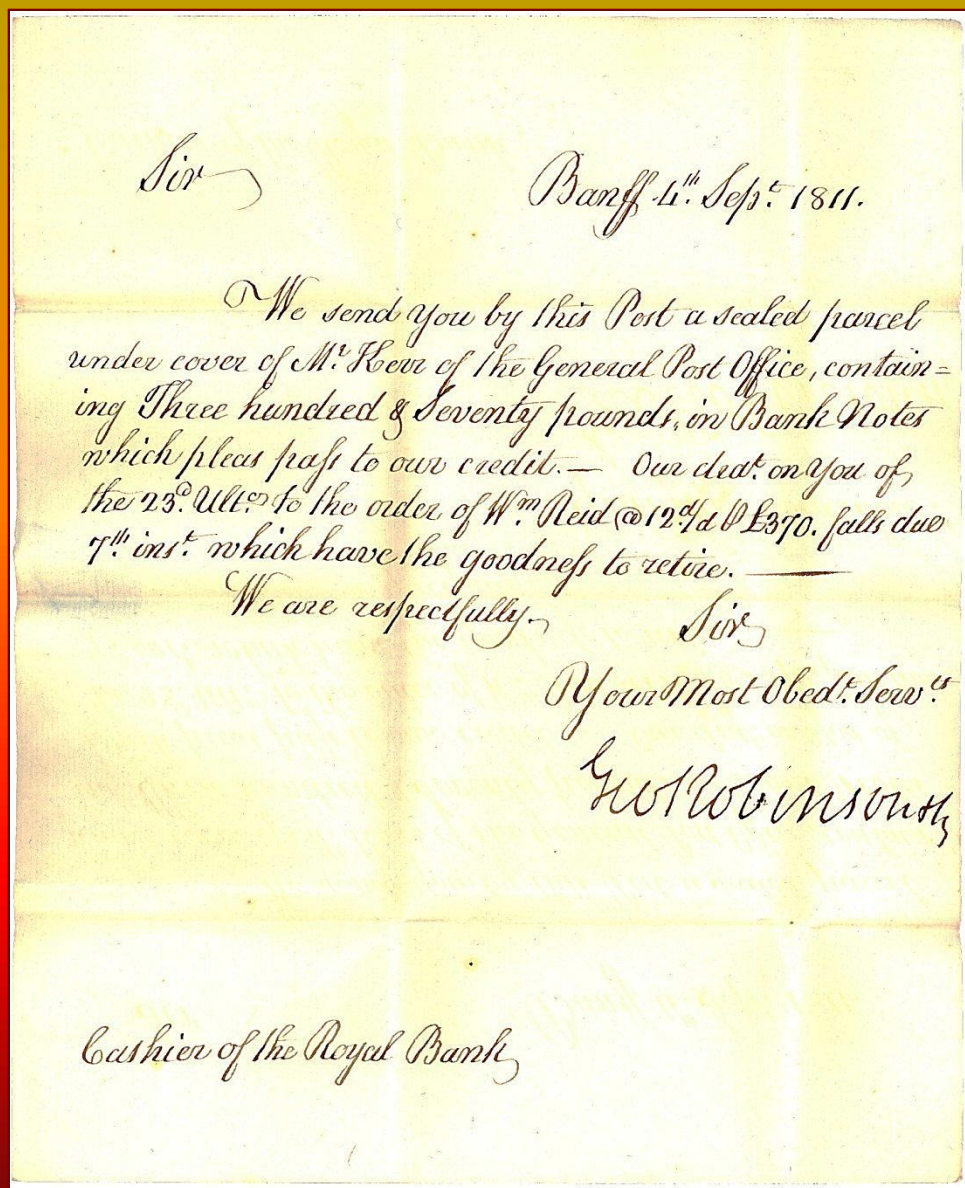 Sir
Banff 4th. Sept. 1811.
We send you by this Post a sealed parcel
under cover of Mr. Kerr of the General Post Office, contain=
ing Three hundred & Seventy pounds, in Bank Notes
which pleas pass to our credit. — Our on you of
the 23d. Ulto. to the order of Wm Reid @ 12 d/d £370. falls due
7th. inst. which have the goodness to retire. —
We are respectfully.
Sir
Your Most Obedt. Servts
Geo Robinson
Cashier of the Royal Bank